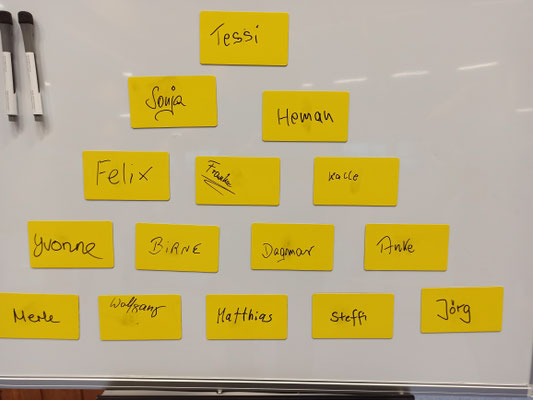 Tessi
Sonja
Heman
Felix
Frauke
Kalle
Yvonne
BIRNE
Dagmar
Anke
Merle
Wolfgang
Matthias
Steffi
Jörg